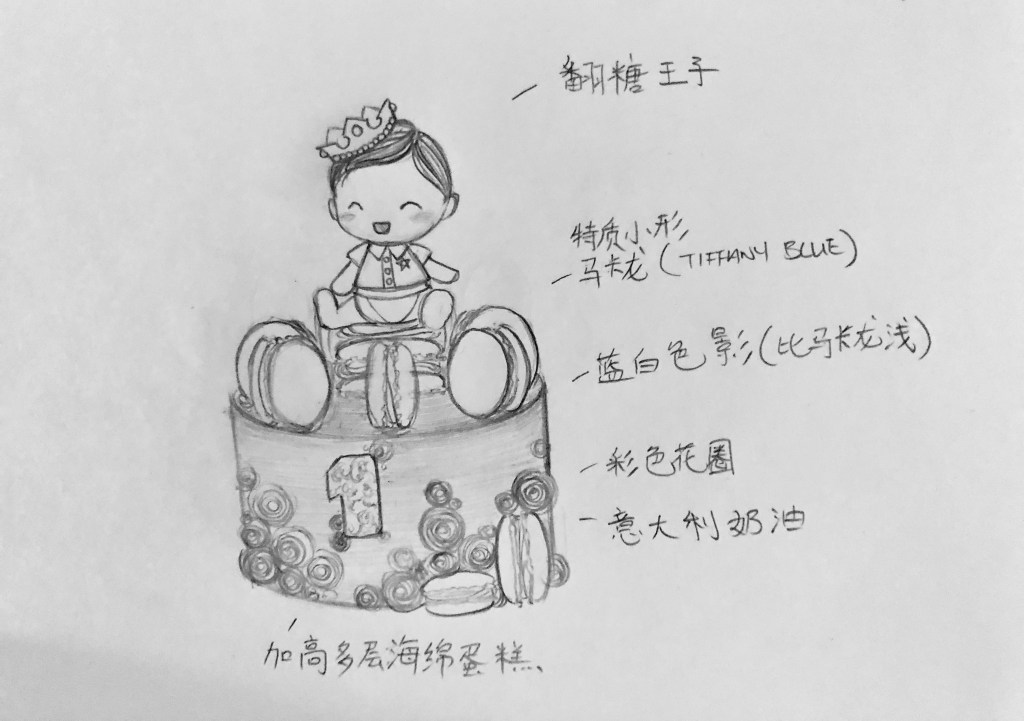 翻糖王子
特质小形
马卡龙 (TIFFANY BLUE)
蓝白色影(比马卡龙浅)
彩色花圈
意大利奶油
1
加高多层海绵蛋糕